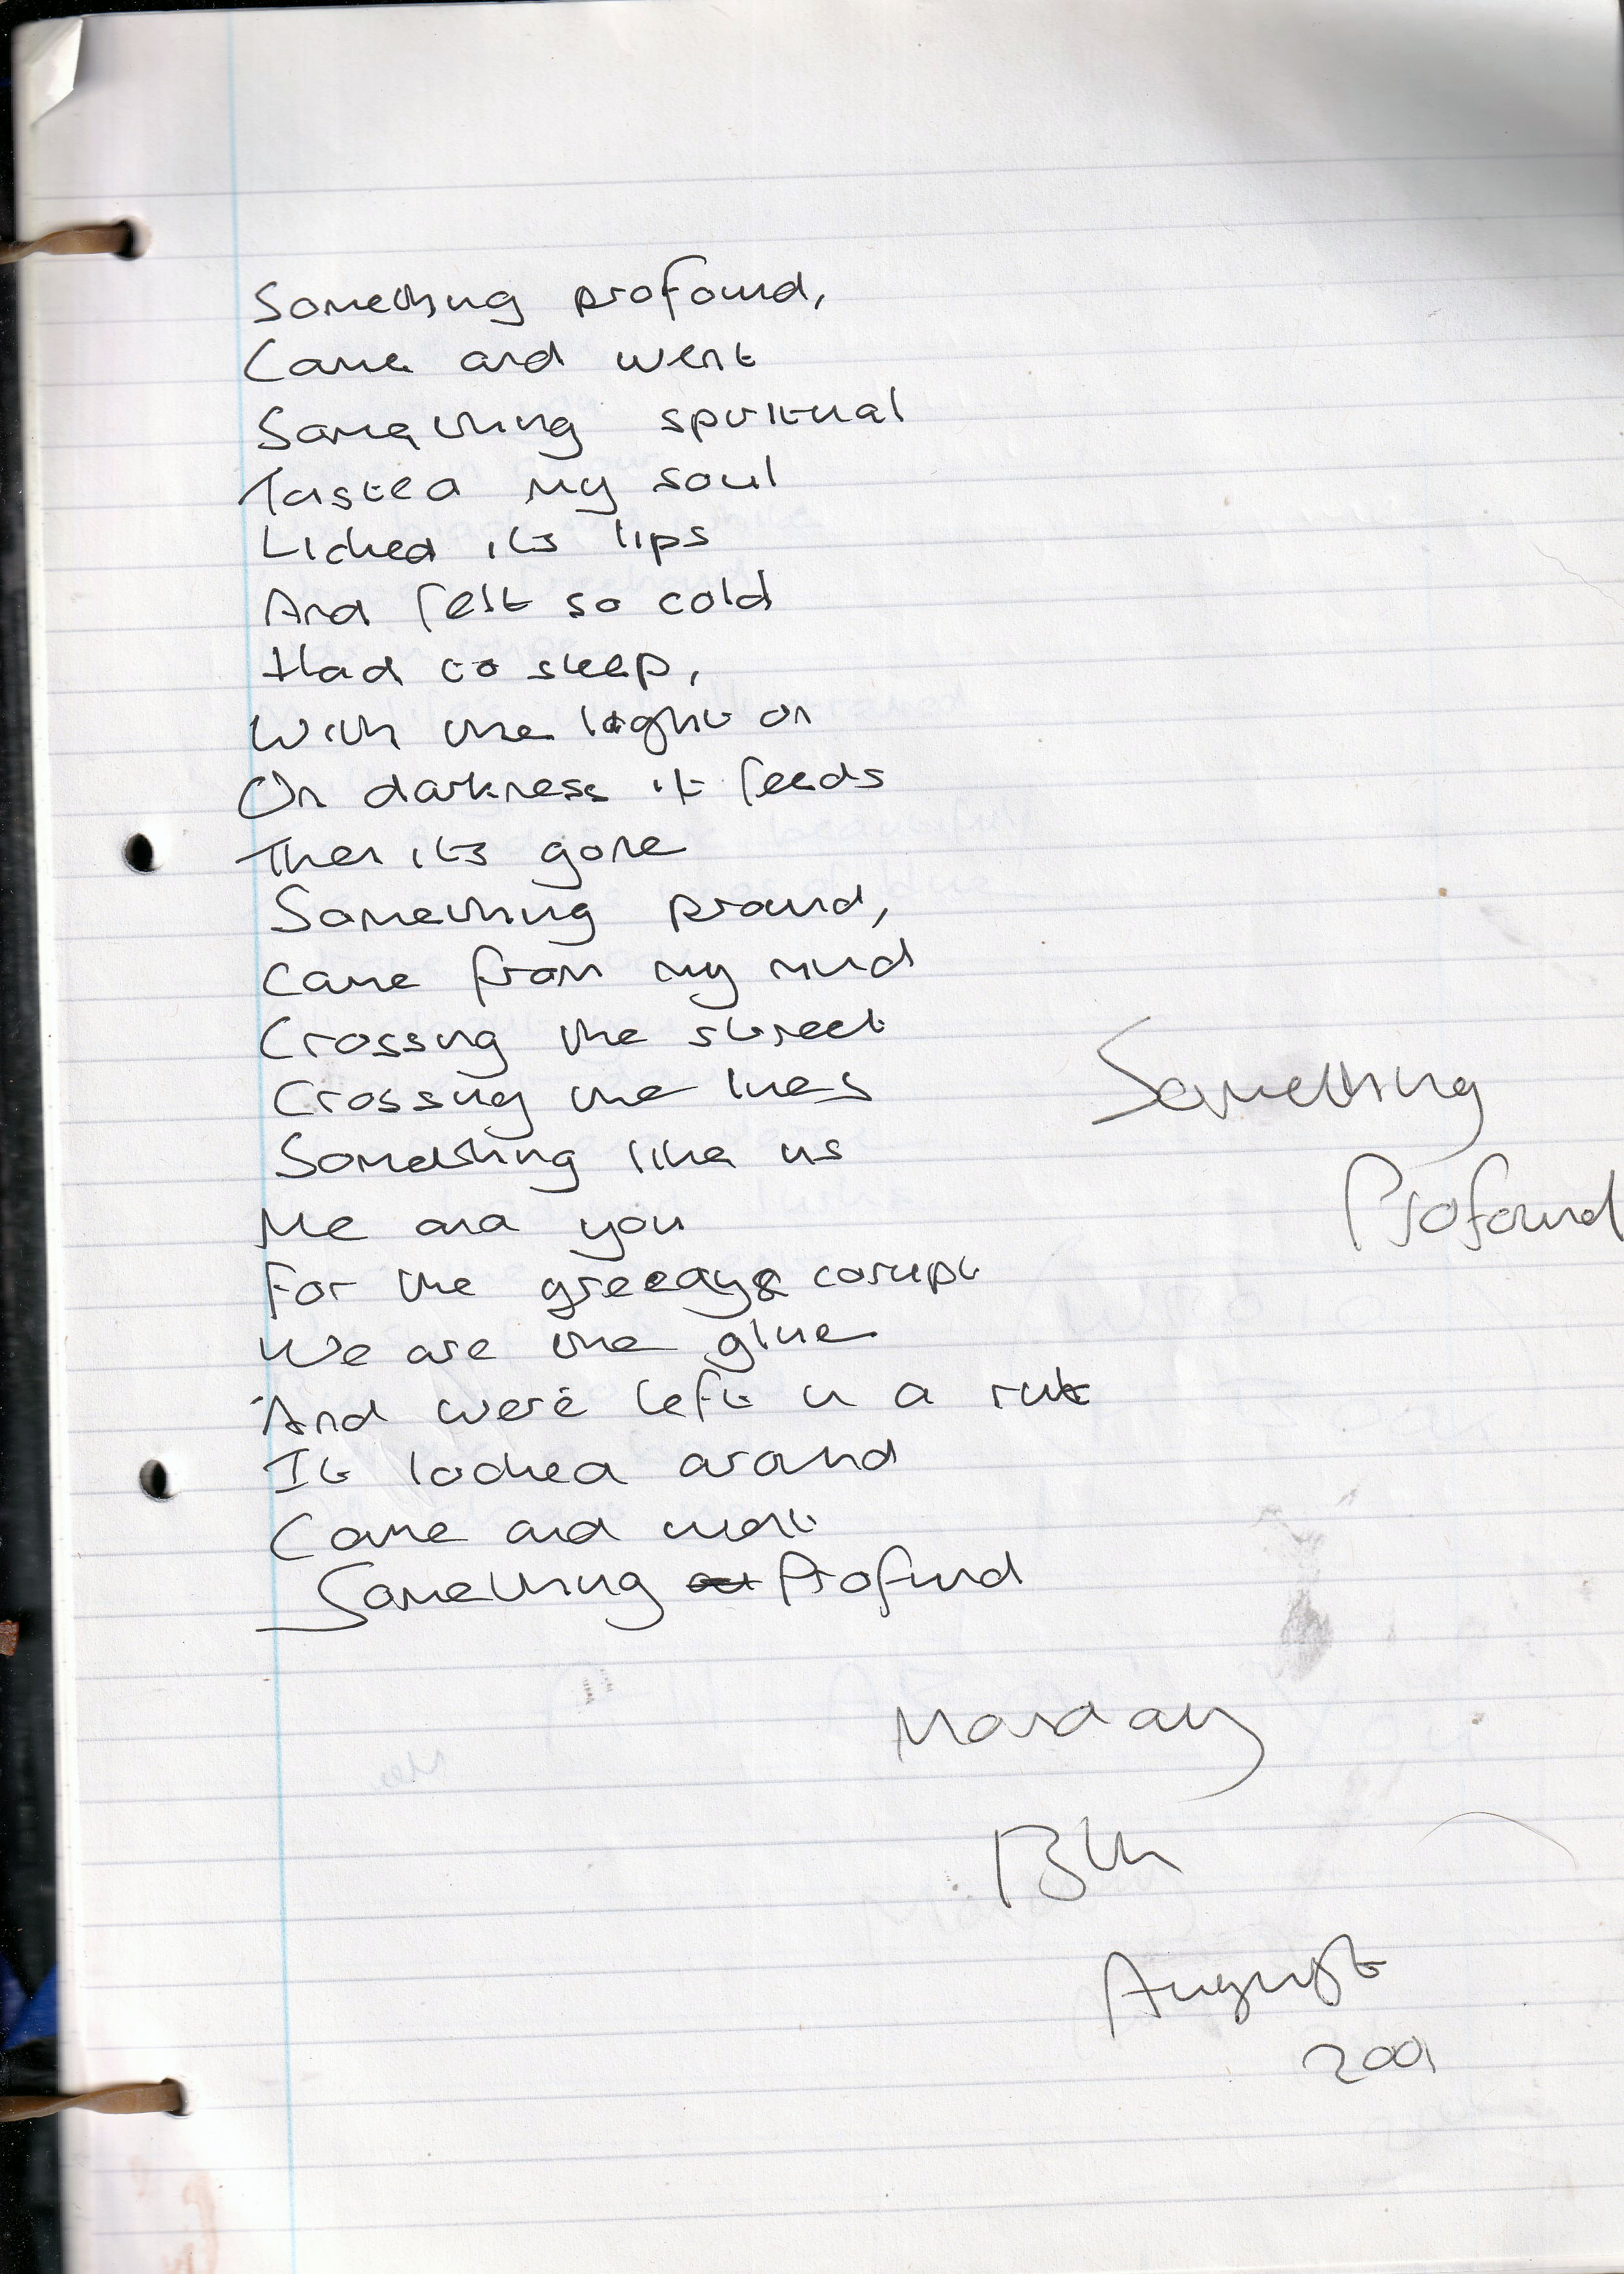 Something profound,
Came and went
Something spiritual
Tasted my soul
Licked its lips
And felt so cold
Had to sleep,
With the light on
On darkness it feeds
Then its gone
Something proud,
Came from my mind
Crossing the street
Crossing the lines
Something like us
Me and you
For the greedy & corupt
We are the glue
And were left in a rut
It looked around
Came and went
Something Profund
Something
Profound
Monday
13th
August
2001